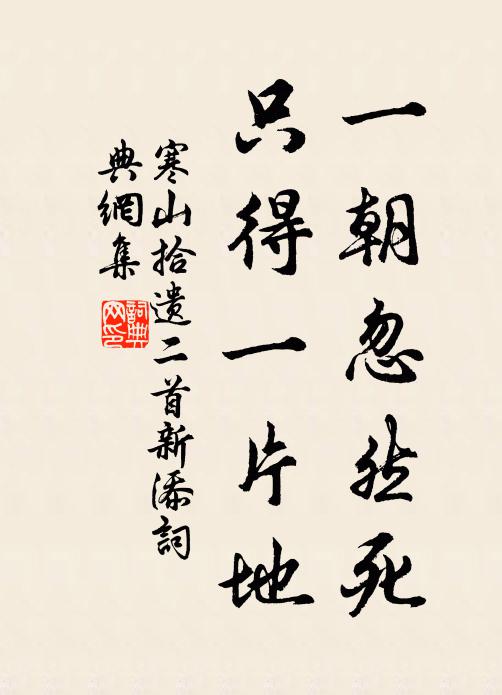 一朝忽然死
只得一片地
寒山拾遗二首新添詞
典網集
詞典网印